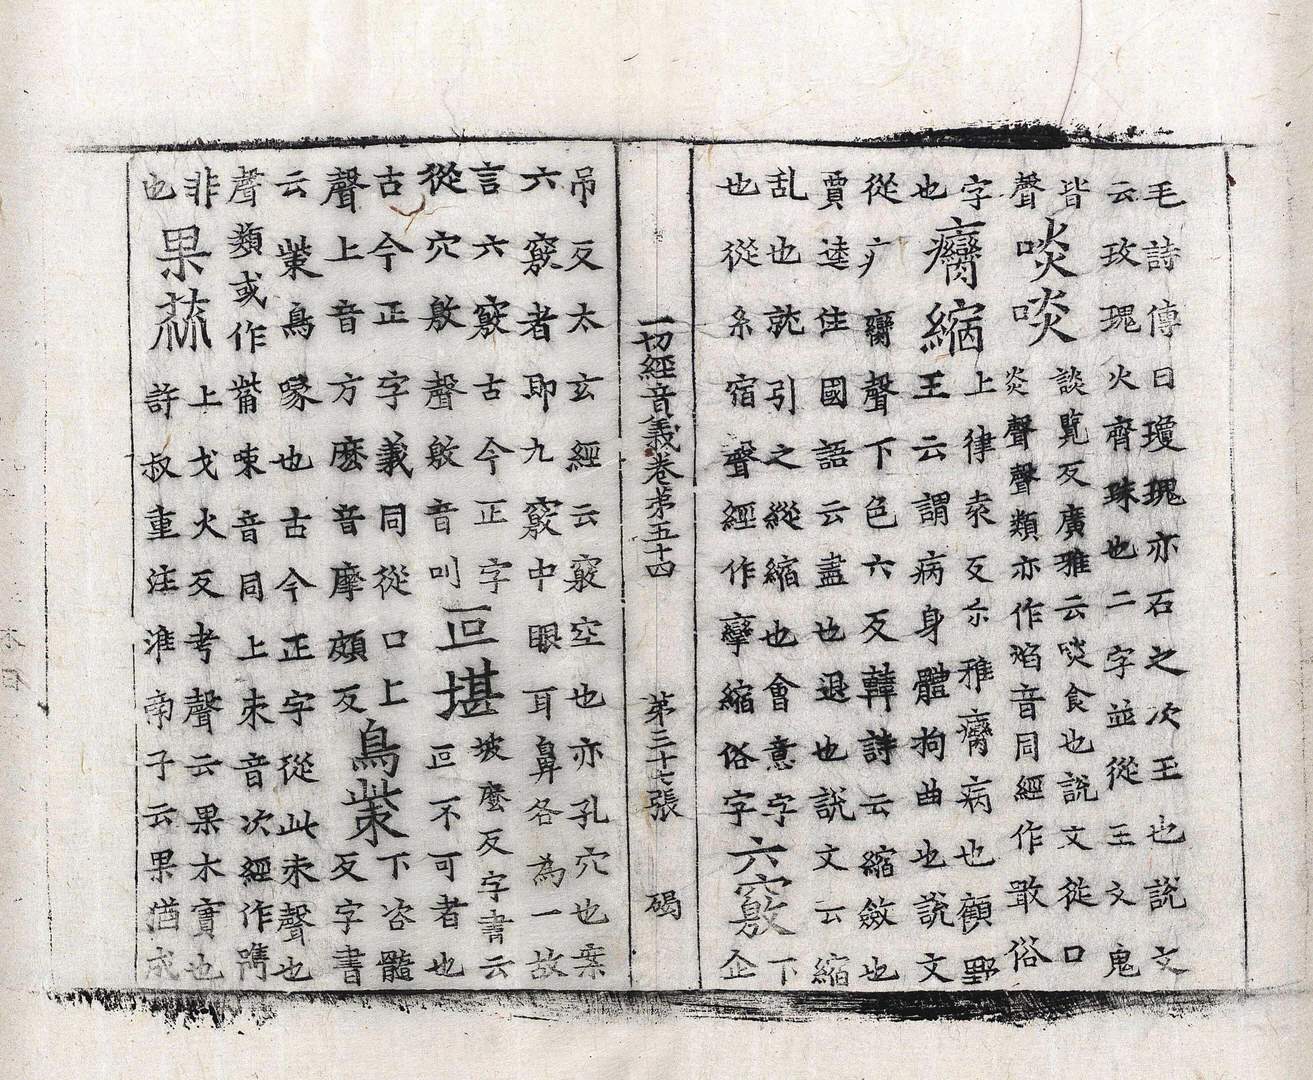 毛詩傳曰瓊瑰亦石之次玉也說文
云玫瑰火齊珠也二字並從玉文鬼
皆
聲
啖啖
談覧反廣雅云啖食也說文從口
炎聲聲類亦作焰音同經作噉俗
字
也
癵縮
上律袁反尒雅癵病也顧野
王云謂病身體拘曲也說文
從疒臠聲下色六反韓詩云縮斂也
賈逵住國語云盡也退也說文云縮
乱也就引之縱縮也會意字
也從糸宿聲經作攣縮俗字
六竅
下
企
一切經音義卷第五十四 第三十七張 碣
吊反太玄經云竅空也亦孔穴也案
六竅者即九竅中眼耳鼻各為一故
言六竅古今正字
從穴敫聲敫音叫
叵堪
坡麼反字書云
叵不可者也
古今正字義同從口上
聲上音方麼音摩頗反
鳥㭰
下咨髓
反字書
云㭰鳥喙也古今正字從此朿聲也
聲類或作觜音同上朿音次經作嘴
非
也
果蓏
上戈火反考聲云果木實也
許叔重注淮南子云果猶成